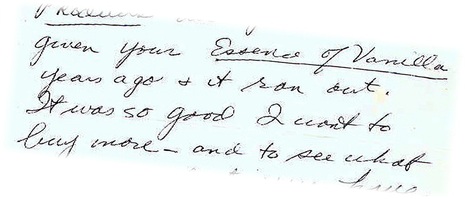 given your Essence of Vanilla
years ago & it ran out.
It was so good I want to
buy more - and to see what
have